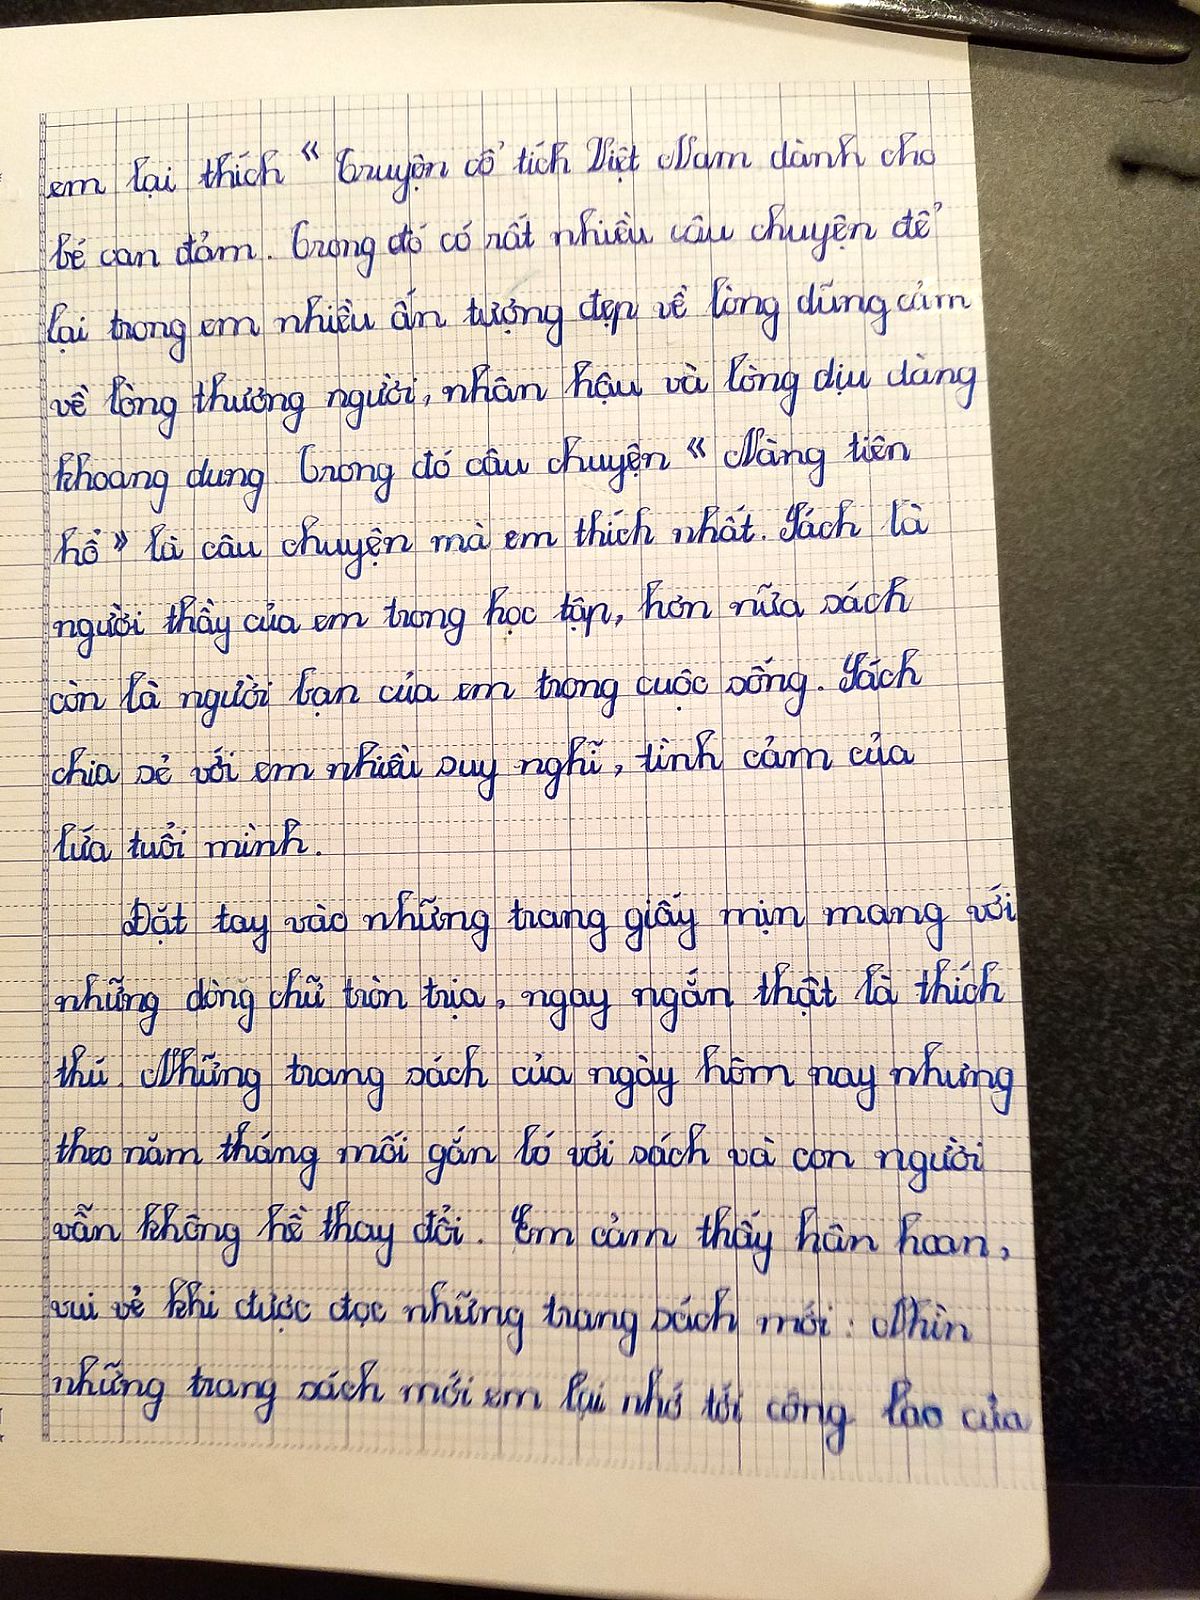 em lại thích « Truyện cổ tích Việt Nam dành cho
bé can đảm. Trong đó có rất nhiều câu chuyện để
lại trong em nhiều ấn tượng đẹp về lòng dũng cảm
về lòng thương người, nhân hậu và lòng dịu dàng
khoang dung Trong đó câu chuyện « Nàng tiên
hổ » là câu chuyện mà em thích nhất. Sách là
người thầy của em trong học tập, hơn nữa sách
còn là người bạn của em trong cuộc sống. Sách
chia sẻ với em nhiều suy nghĩ, tình cảm của
lứa tuổi mình.
Đặt tay vào những trang giấy mịn mang với
những dòng chữ tròn trịa, ngay ngắn thật là thích
thú. Những trang sách của ngày hôm nay nhưng
theo năm tháng mối gắn bó với sách và con người
vẫn không hề thay đổi. Em cảm thấy hân hoan,
vui vẻ khi được đọc những trang sách mới. Nhìn
những trang sách mới em lại nhớ tới công lao của